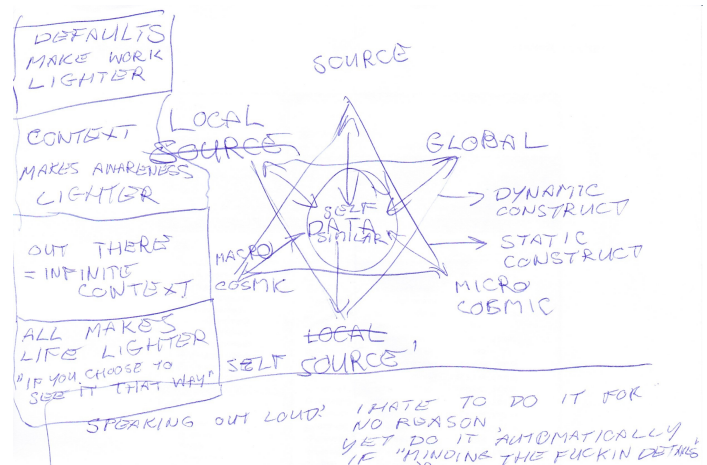 DEFAULTS
MAKE WORK
LIGHTER
CONTEXT
MAKES AWARENESS
LIGHTER
OUT THERE
= INFINITE
CONTEXT
ALL MAKES
LIFE LIGHTER
"IF YOU CHOOSE TO
SEE IT THAT WAY"
SOURCE
LOCAL
SOURCE
GLOBAL
DYNAMIC
CONSTRUCT
STATIC
CONSTRUCT
SELF
DATA
SIMILAR
MACRO
COSMIC
MICRO
COSMIC
LOCAL
SELF SOURCE'
SPEAKING OUT LOUD:
I HATE TO DO IT FOR
NO REASON
YET DO IT 'AUTOMATICALLY
IF "MINDING THE FUCKIN DETAILS"